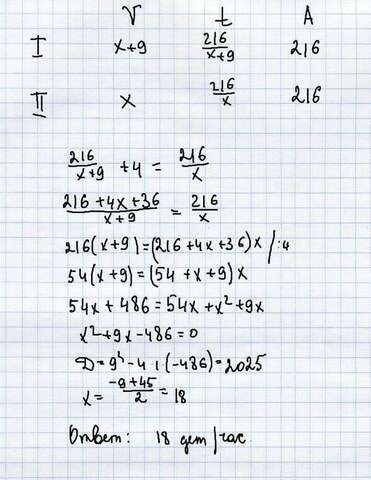 V t A
I x+9 216/(x+9) 216
II x 216/x 216
216/(x+9) +4 = 216/x
(216+4x+36)/(x+9) = 216/x
216(x+9)=(216+4x+36)x /:4
54(x+9)=(54+x+9)x
54x+486=54x+x²+9x
x²+9x-486=0
D=9²-4·1(-486)=2025
x=(-9+45)/2=18
Ответ: 18 дет/час.